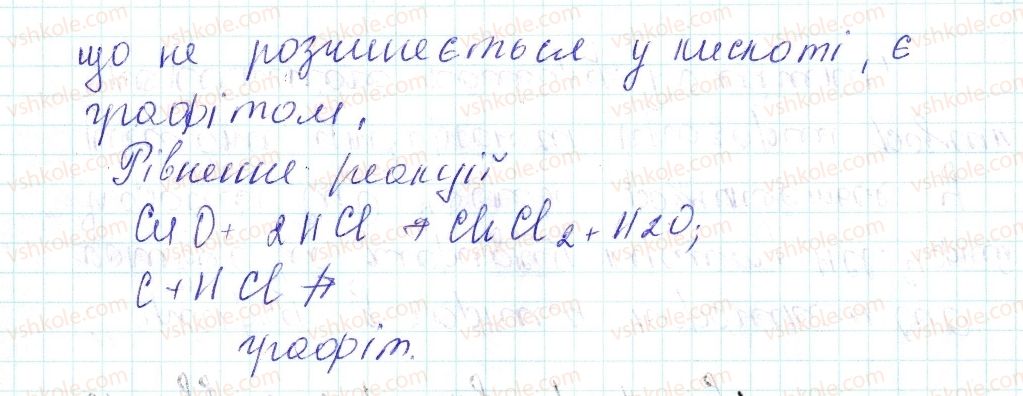 що не розчиняється у кислоті, є
графітом.
Рівнення реакцій
CuO + 2HCl → CuCl2 + H2O;
C + HCl ↛
графіт.